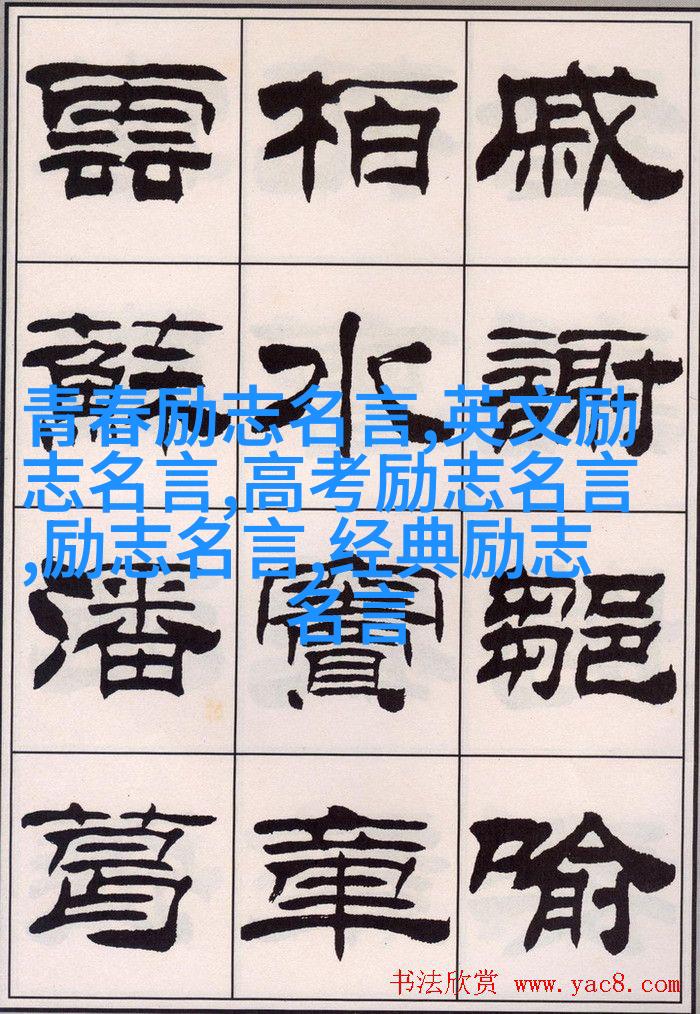 戚謝鄒喻
栢水竇章
雲蘇潘葛
青春励志名言,英文励
志名言,高考励志名言
,励志名言,经典励志
名言
书法欣赏 www.yac8.com